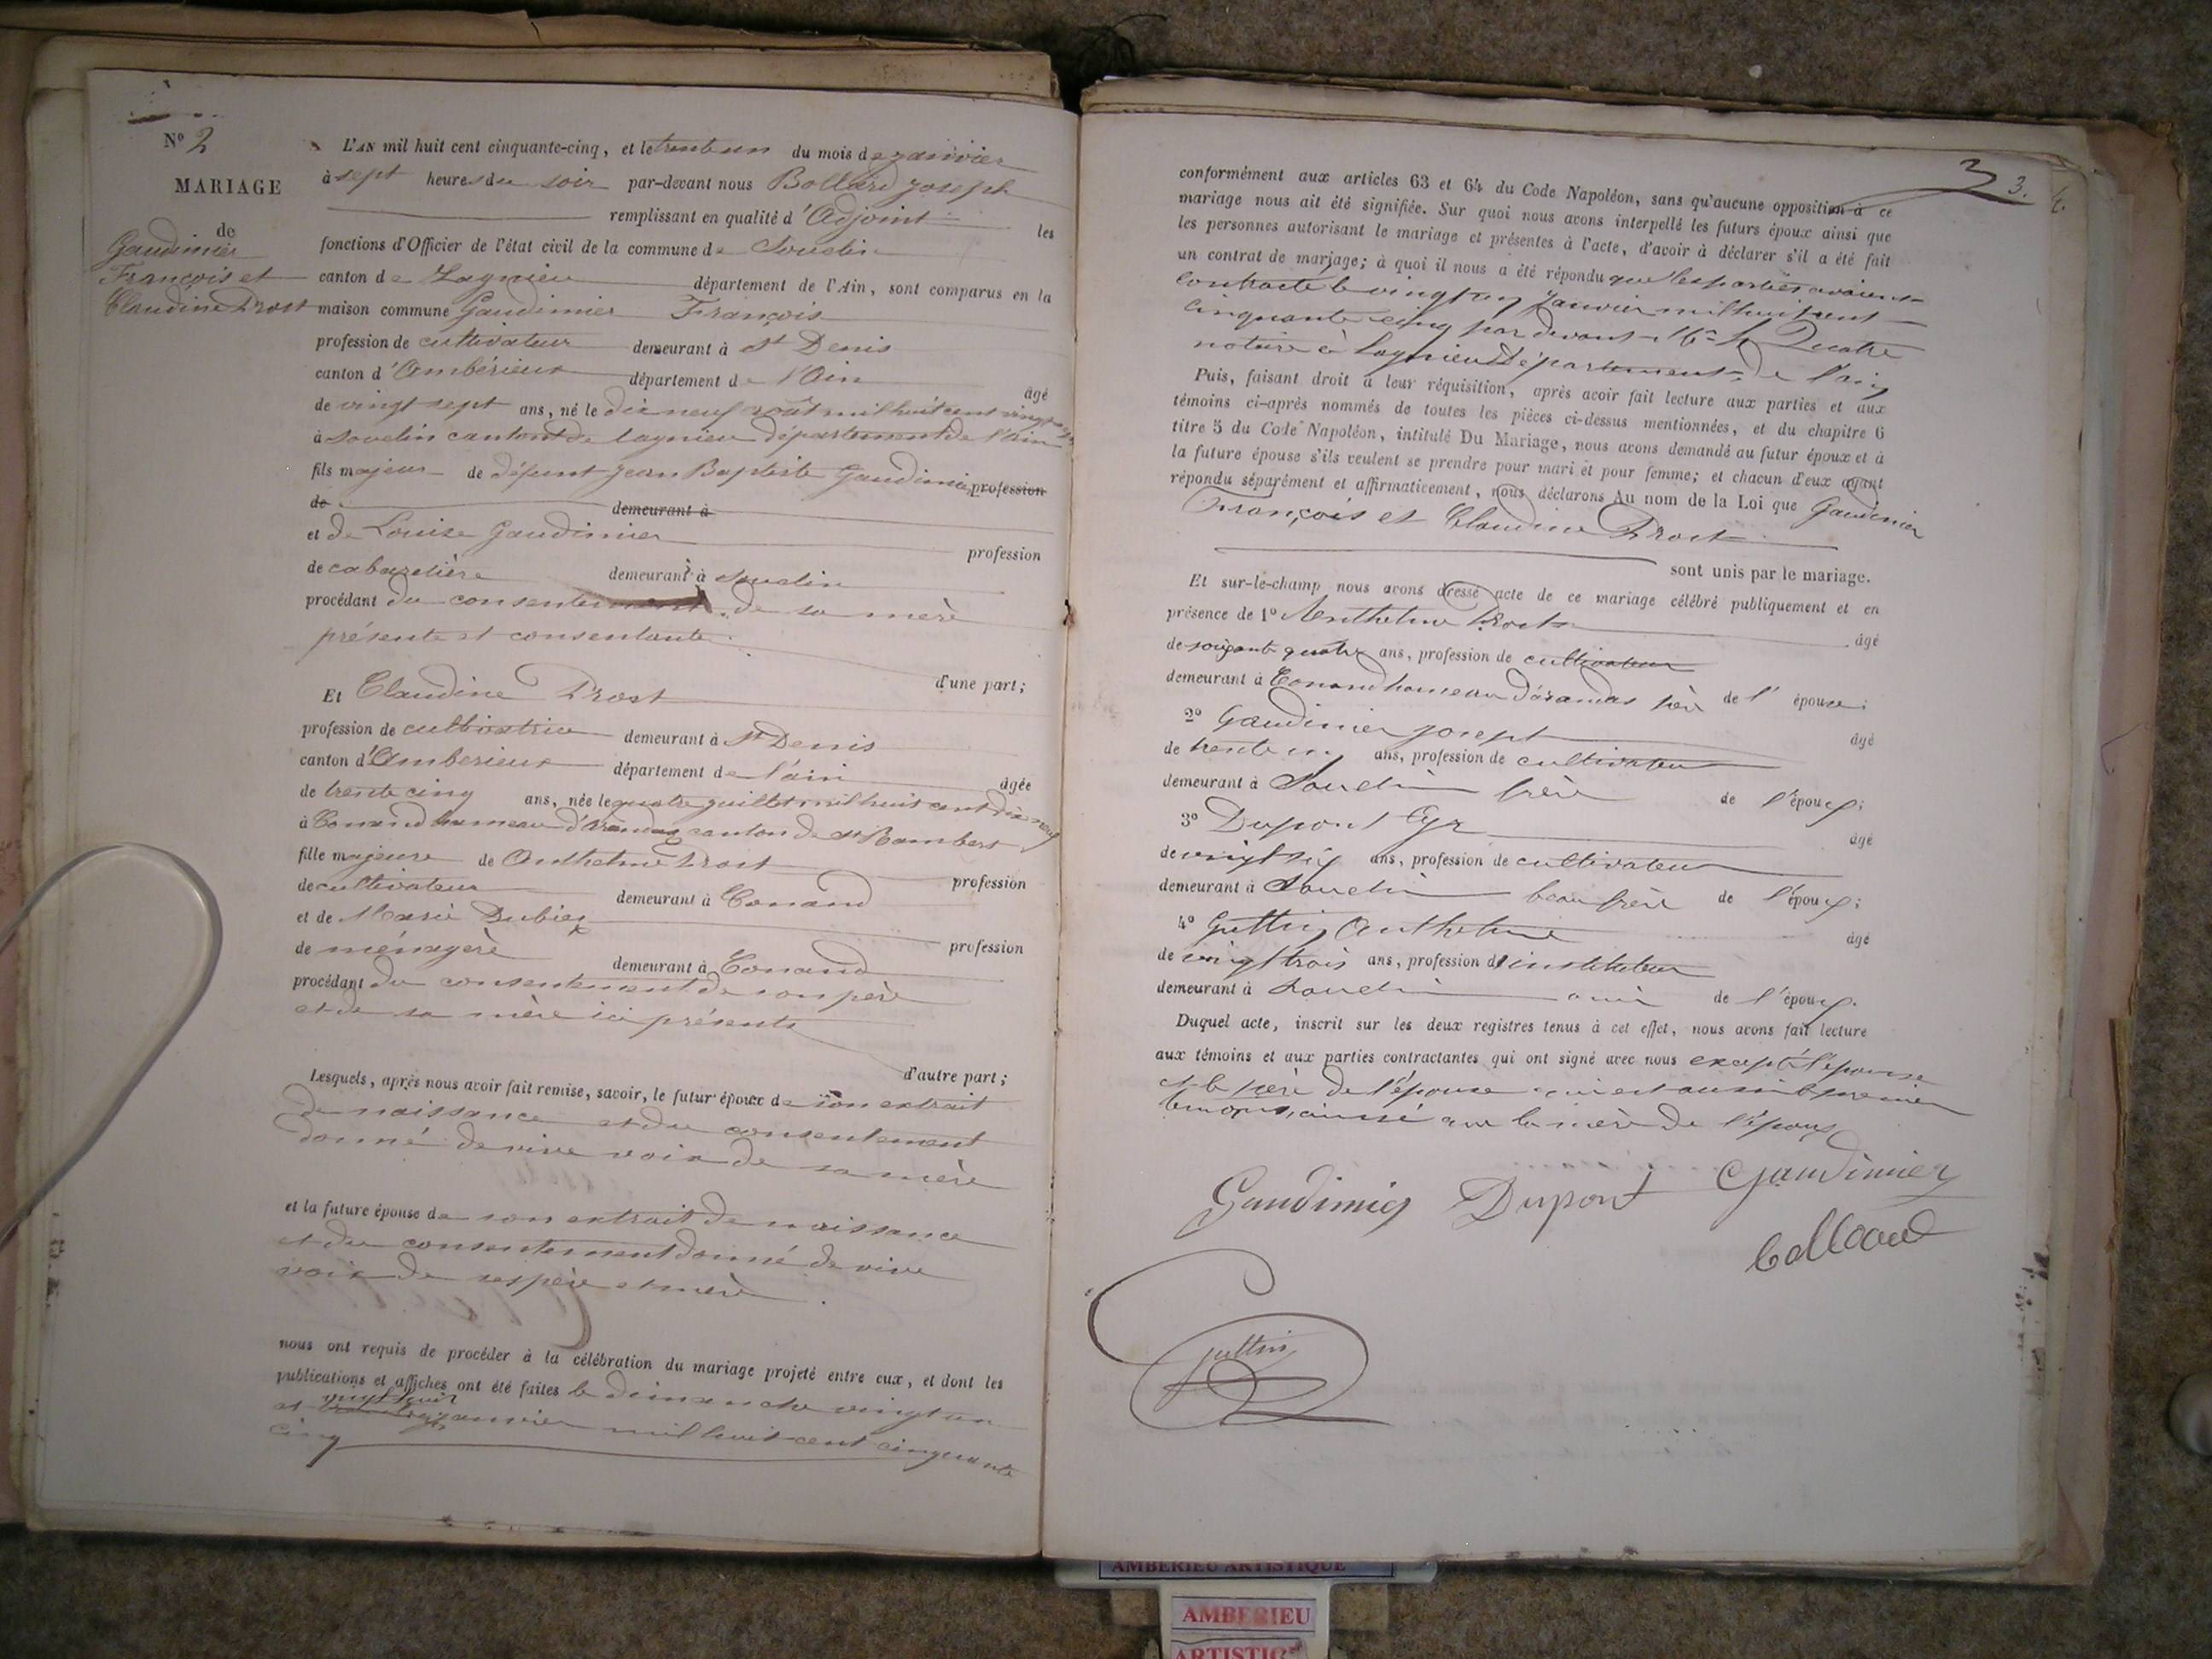 N° 2
MARIAGE
de
Gaudimier
François et
Claudine Prost
L'AN mil huit cent cinquante-cinq, et le trente un du mois de janvier
à sept heures du soir par-devant nous Bollard Joseph
remplissant en qualité d'Adjoint les
fonctions d'Officier de l'état civil de la commune de Souclin
canton de Lagnieu département de l'Ain, sont comparus en la
maison commune Gaudimier François
profession de cultivateur demeurant à St Denis
canton d'Ambérieux département de l'Ain âgé
de vingt sept ans, né le dix neuf août mil huit cent vingt sept
à Souclin canton de lagnieu département de l'Ain
fils majeur de défunt Jean Baptiste Gaudimier profession
de demeurant à
et de Louise Gaudimier profession
de cabaretière demeurant à Souclin
procédant du consentement de sa mère
présente et consentante.
d'une part;
Et Claudine Prost
profession de cultivatrice demeurant à St Denis
canton d'Amberieux département de l'ain âgée
de trente cinq ans, née le quatre juillet mil huit cent dix neuf
à Conand hameau d'Arandas canton de St Rambert
fille majeure de Anthelme Prost profession
de cultivateur demeurant à Conand
et de Marie Dubiez profession
de ménagère demeurant à Conand
procédant du consentement de son père
et de sa mère ici présents
d'autre part;
Lesquels, après nous avoir fait remise, savoir, le futur époux de son extrait
de naissance et du consentement
donné de vive voix de sa mère
et la future épouse de son extrait de naissance
et du consentement donné de vive
voix de ses père et mère.
nous ont requis de procéder à la célébration du mariage projeté entre eux, et dont les
publications et affiches ont été faites le dimanche vingt un
vingt huit
et janvier mil huit cent cinquante
cinq
3 3.
conformément aux articles 63 et 64 du Code Napoléon, sans qu'aucune opposition à ce
mariage nous ait été signifiée. Sur quoi nous avons interpellé les futurs époux ainsi que
les personnes autorisant le mariage et présentes à l'acte, d'avoir à déclarer s'il a été fait
un contrat de mariage; à quoi il nous a été répondu que les parties avaient
contracté le vingt un janvier mil huit cent
cinquante cinq par devant Me
notaire à Lagnieu département de l'ain
Puis, faisant droit à leur réquisition, après avoir fait lecture aux parties et aux
témoins ci-après nommés de toutes les pièces ci-dessus mentionnées, et du chapitre 6
titre 5 du Code Napoléon, intitulé Du Mariage, nous avons demandé au futur époux et à
la future épouse s'ils veulent se prendre pour mari et pour femme; et chacun d'eux ayant
répondu séparément et affirmativement, nous déclarons Au nom de la Loi que Gaudimier
François et Claudine Prost
sont unis par le mariage.
Et sur-le-champ nous avons dressé acte de ce mariage célébré publiquement et en
présence de 1° Anthelme Prost âgé
de soixante quatre ans, profession de cultivateur
demeurant à Conand hameau d'arandas père de l'épouse;
2° Gaudimier joseph âgé
de trente un ans, profession de cultivateur
demeurant à Souclin frère de l'époux;
3° Dupont Cyr âgé
de vingt six ans, profession de cultivateur
demeurant à Souclin beau frère de l'époux;
4° Guttin Anthelme âgé
de vingt trois ans, profession d'instituteur
demeurant à Souclin ami de l'époux.
Duquel acte, inscrit sur les deux registres tenus à cet effet, nous avons fait lecture
aux témoins et aux parties contractantes qui ont signé avec nous excepté l'épouse
et le père de l'épouse qui est aussi le premier
temoins, ainsi que la mère de l'époux
Gaudimier Dupont Gaudimier
Bollard
Guttin
AMBERIEU ARTISTIQUE
AMBERIEU